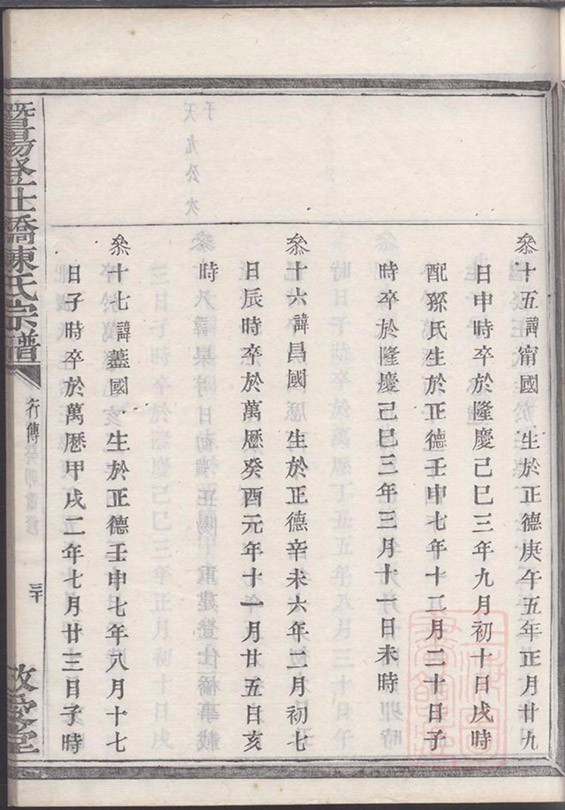 叅十五諱甯國　生於正德庚午五年正月廿九
日申時卒於隆慶己巳三年九月初十日戌時
配孫氏生於正德壬申七年十二月二十日子
時卒於隆慶己巳三年三月十一日未時
叅十六諱昌國　生於正德辛未六年二月初七
日辰時卒於萬厯癸酉元年十一月廿五日亥
時
叅十七諱藎國　生於正德壬申七年八月十七
日子時卒於萬厯甲戌二年七月廿三日子時
暨陽登仕橋陳氏宗譜
行傳
三十
敬愛堂